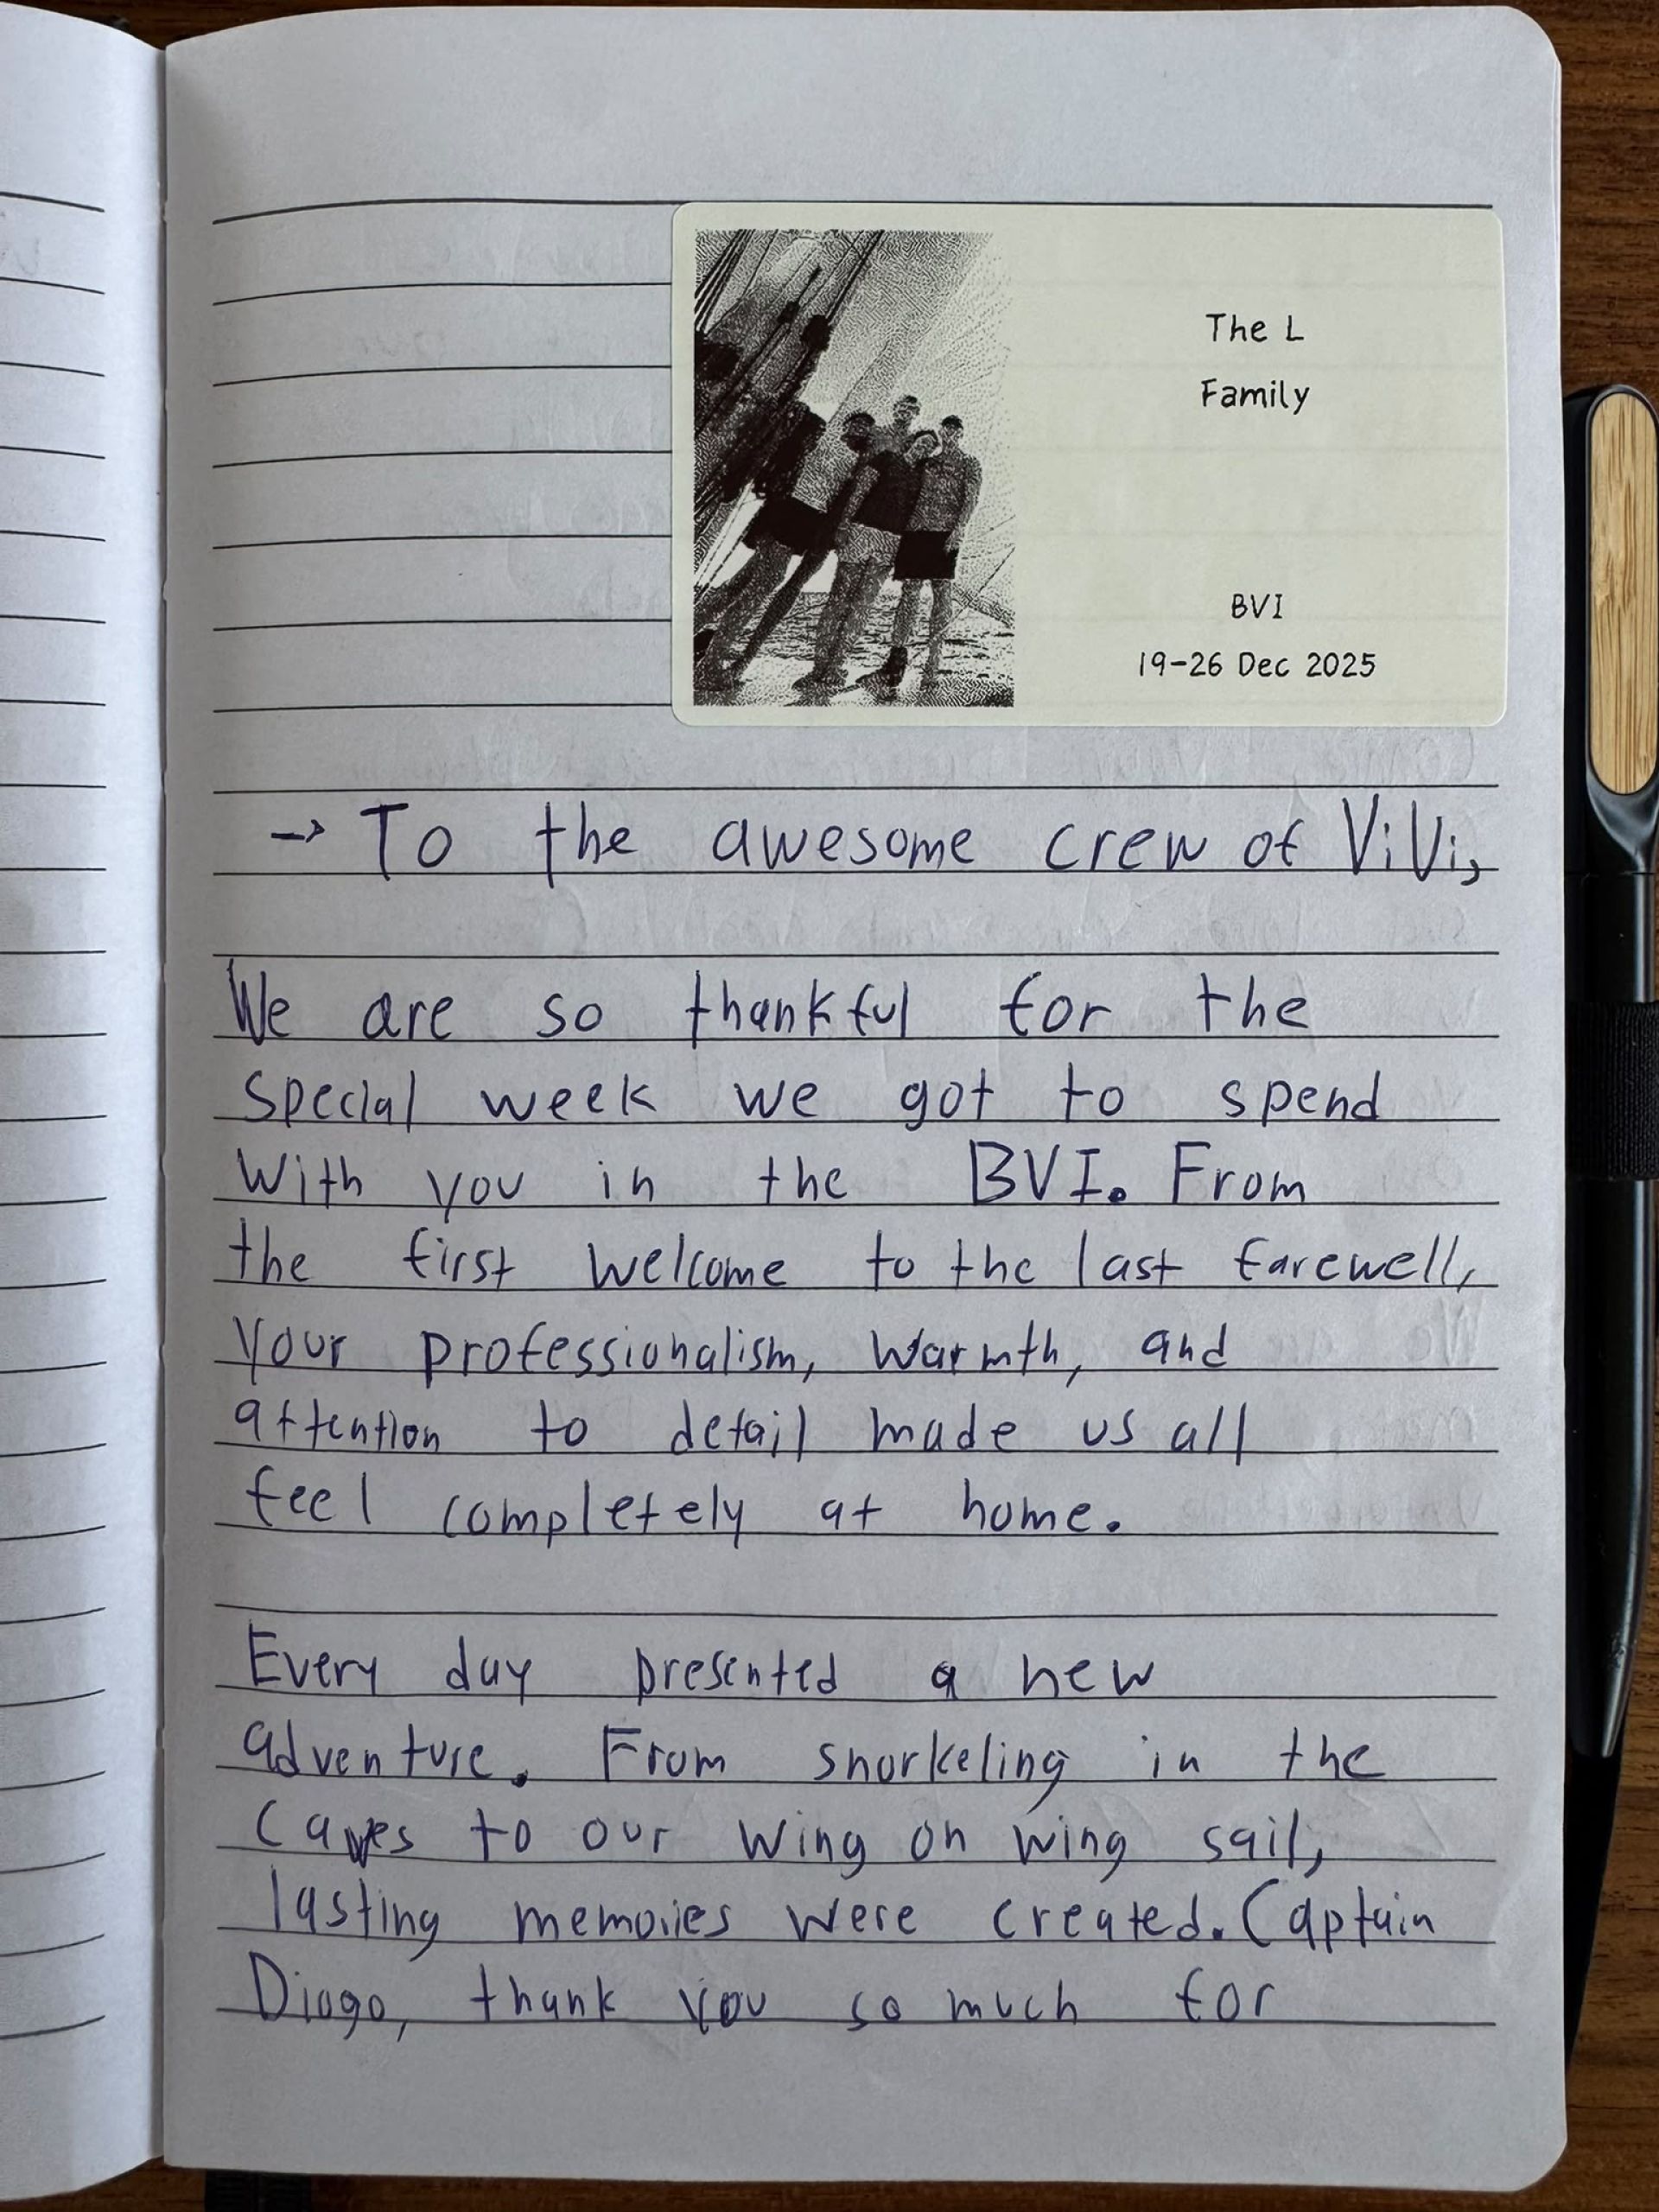 The L
Family
BVI
19-26 Dec 2025
→ To the awesome crew of ViVi,
We are so thankful for the
special week we got to spend
with you in the BVI. From
the first welcome to the last farewell,
your professionalism, warmth, and
attention to detail made us all
feel completely at home.
Every day presented a new
adventure. From snorkeling in the
caves to our wing on wing sail,
lasting memories were created. Captain
Diogo, thank you so much for